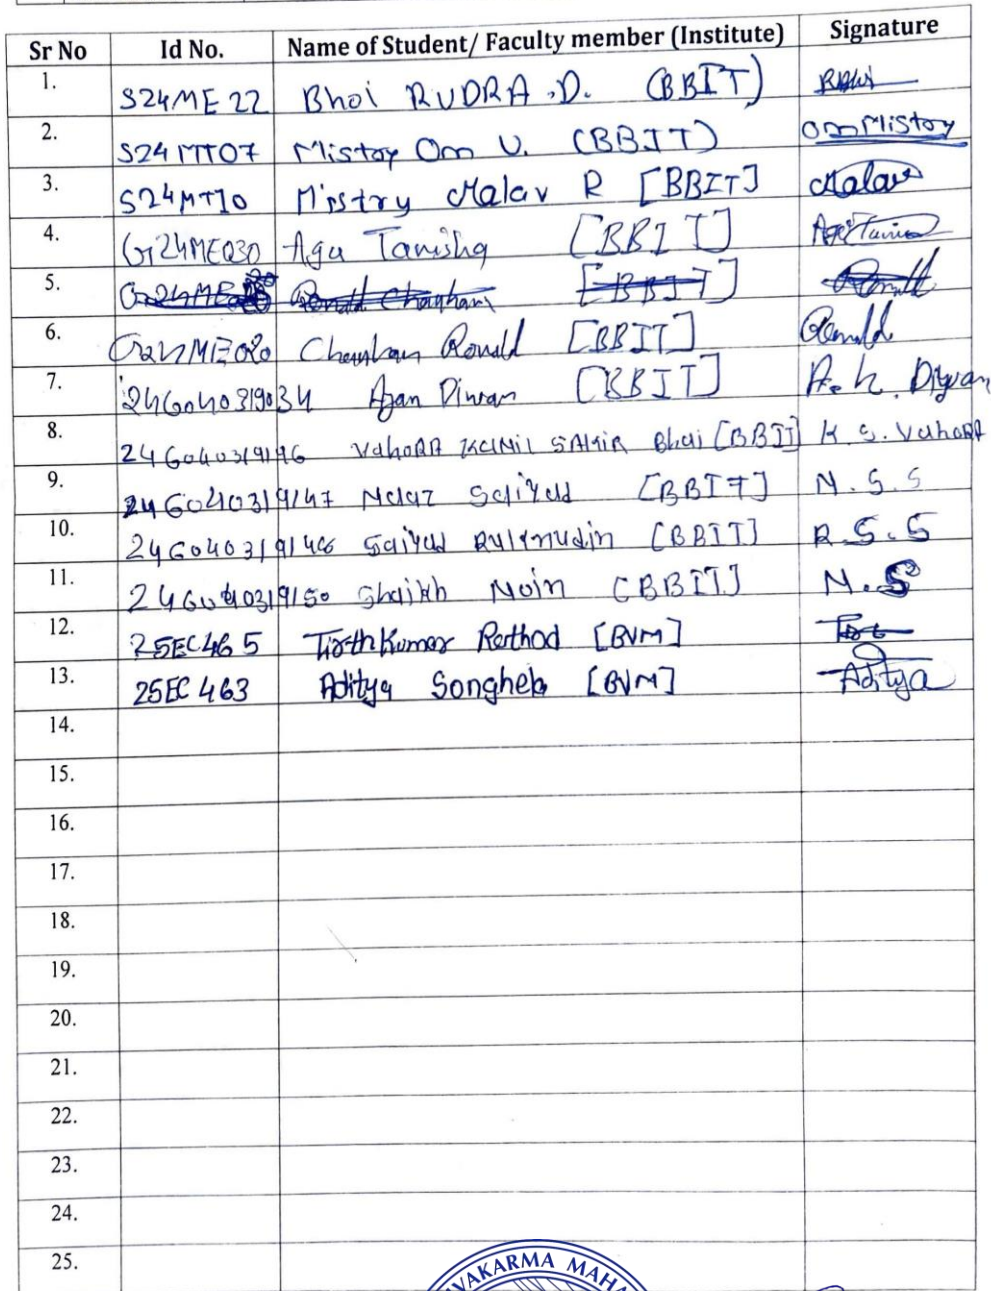 Sr No Id No. Name of Student/ Faculty member (Institute) Signature
1. S24ME22 Bhoi RUDRA .D. (BBIT)
2. S24MT07 Mistry Om U. (BBIT) Om Mistry
3. S24MT10 Mistry Malav R [BBIT] Malav
4. G24ME030 Aga Tanisha [BBIT]
5. [BBIT]
6. G24ME020 Chauhan Ronald [BBIT] Ronald
7. 246040319034 Ajan Diwan [BBIT] A. h. Diwan
8. 246040319196 VahoRA KAMIL SAKIR Bhai [BBIT] K. S. VahoRA
9. 246040319147 Saiyed [BBIT] N. S. S
10. 246040319146 Saiyed [BBIT] R. S. S
11. 246040319150 Shaikh Moin [BBIT] M. S
12. 25EC465 TirthKumar Rathod [BVM]
13. 25EC463 Aditya Songhela [BVM] Aditya
14.
15.
16.
17.
18.
19.
20.
21.
22.
23.
24.
25.
VAKARMA MAHA